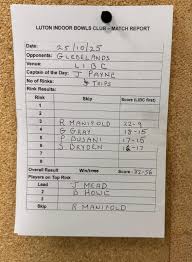 LUTON INDOOR BOWLS CLUB - MATCH REPORT
Date: 25/10/25
Opponents: GLEBELANDS
Venue: L I B C
Captain of the Day: J PAYNE
No of Rinks: 4 TRIPS
Rink Results:
Rink Skip Score (LIBC first)
1
2
3
4
5 R MANIFOLD 22-9
6 G GRAY 18-15
7 P BUSANI 17-15
8 S DRYDEN
Overall Result Win/
Players on Top Rink
Lead J MEAD
2 B HOWE
3
Skip R MANIFOLD